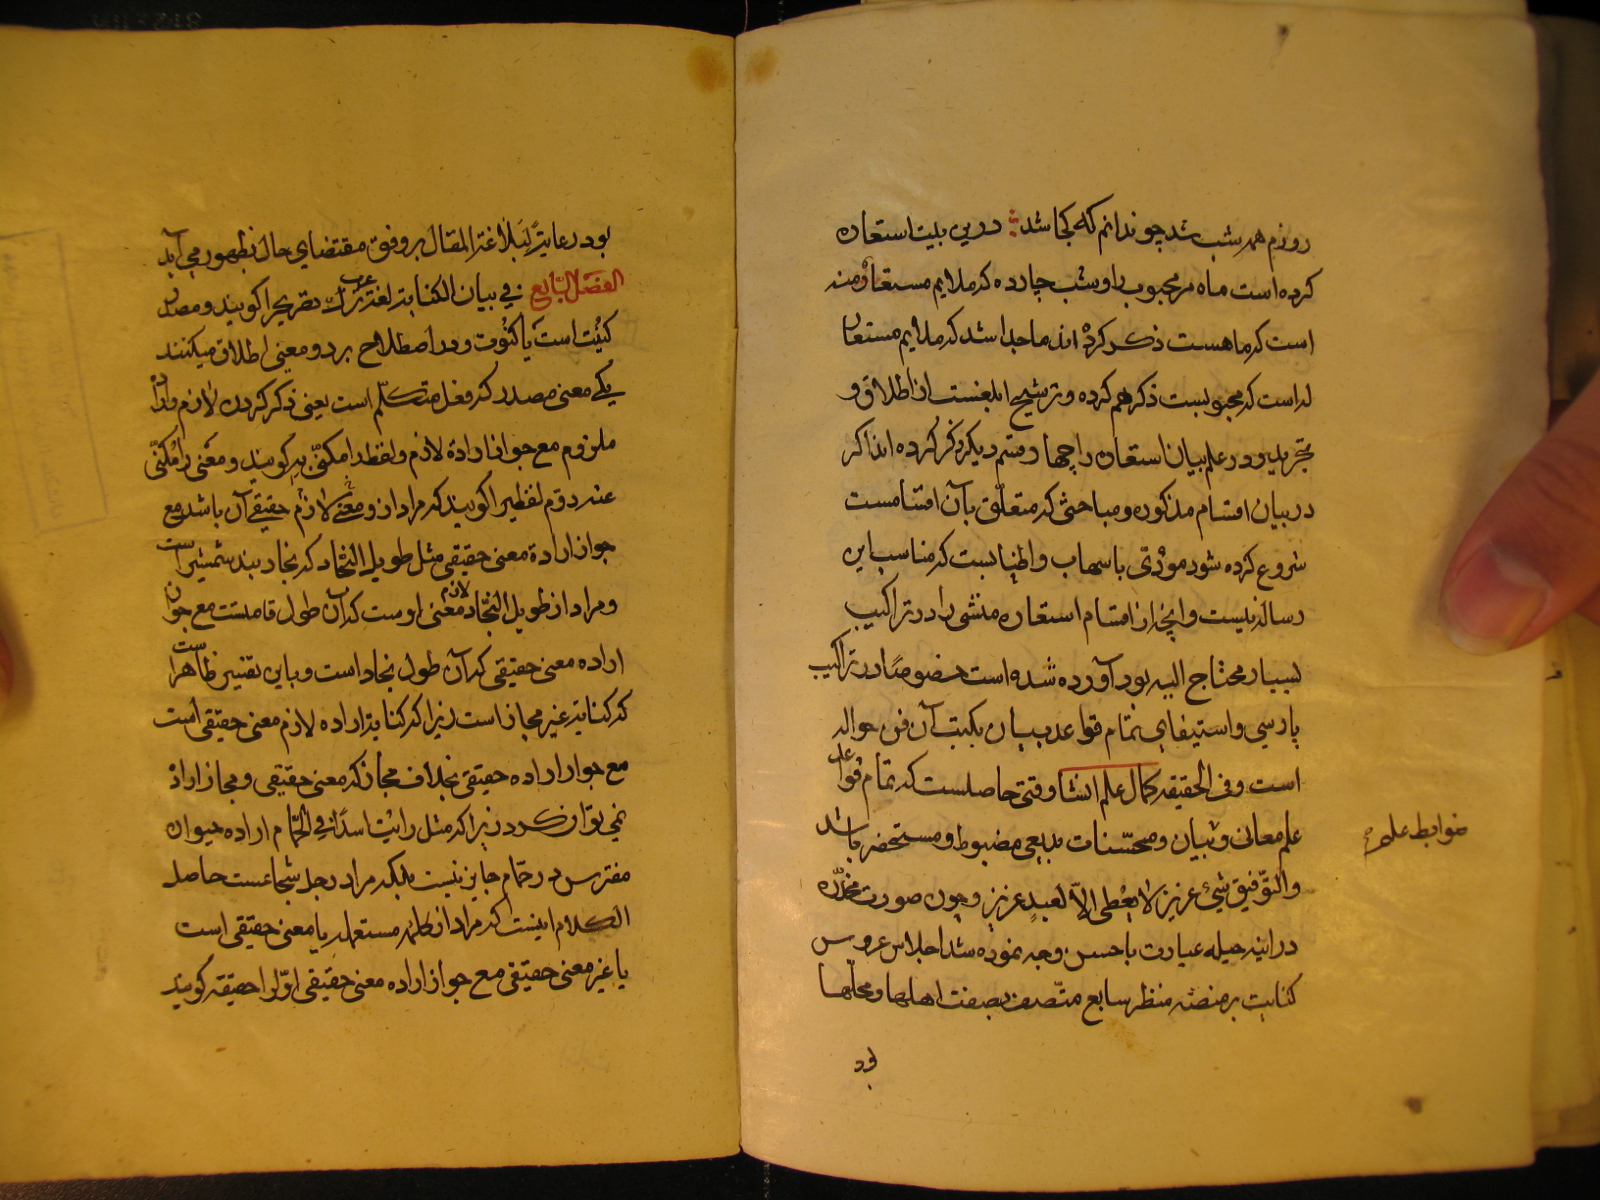 روزم همه شب شد چو ندانم که کجا شد درین بیت استعاره
کرده است ماه مر محبوب را و شب چارده که ملایم مستعار منه
است که ماهست ذکر کرده اند ما جدا شد که ملایم مستعار
له است که محبوبست ذکر هم کرده و ترشیح ابلغست از اطلاق و
تجرید و در علم بیان استعاره را چهار قسم دیکر ذکر کرده اند اکر
در بیان اقسام مذکوره و مباحثی که متعلّق بآن اقسامست
شروع کرده شود مؤدّی باسهاب و اطنابست که مناسب این
رساله نیست و آنچه از اقسام استعاره منشی را در تراکیب
بسیار محتاج الیه بود آورده شده است خصوصًا در تراکیب
پارسی و استیفای تمام قواعد بیان بکتب آن فن حواله
است و فی الحقیقه کمال علم انشا وقتی حاصلست که تمام قواعد
علم معانی و بیان و محسّنات بدیعی مضبوط و مستحضر باشد
ضوابط علم
والتّوفیق شیء عزیز لا یعطی الاّ لعبدٍ عزیز و چون صورت مخدّره
در آینه حیله عبارت باحسن وجه نموده شد اجلاس عروس
کنایت بر منصّه منظر سابع متّصف بصفت اهلها و محلّها
بود
بود رعایةً لبلاغة المقال بر وفق مقتضای حال بظهور می آید
الفصل السّابع فی بیان الکنایة لغة ترک تصریح را کویند و مصدر
کنیت است یا کنوت و در اصطلاح بر دو معنی اطلاق میکنند
یکی معنی مصدر که فعل متکلّم است یعنی ذکر کردن لازم و ارادهٔ
ملزوم مع جواز ارادة لازم و لفظ را مکنّی به کویند و معنی را مکنّی
عنه دوّم لفظی را کویند که مراد از و معنی لازم حقیقی آن باشد مع
جواز ارادة معنی حقیقی مثل طویل النّجاد که نجاد بند شمشیر است
و مراد از طویل النّجاد لازم معنی اوست که آن طول قامتست مع جواز
اراده معنی حقیقی که آن طول نجاد است و باین تفسیر ظاهر است
که کنایة غیر مجاز است زیرا که کنایة اراده لازم معنی حقیقی است
مع جواز اراده حقیقی بخلاف مجاز که معنی حقیقی و مجاز اراده
نمی توان کرد زیرا که مثل رایت اسدًا فی الحمّام اراده حیوان
مفترس در حمّام جایز نیست بلکه مراد رجل شجاعست حاصل
الکلام اینست که مراد از کلمه مستعمله یا معنی حقیقی است
یا غیر معنی حقیقی مع جواز اراده معنی حقیقی اوّل را حقیقه کویند